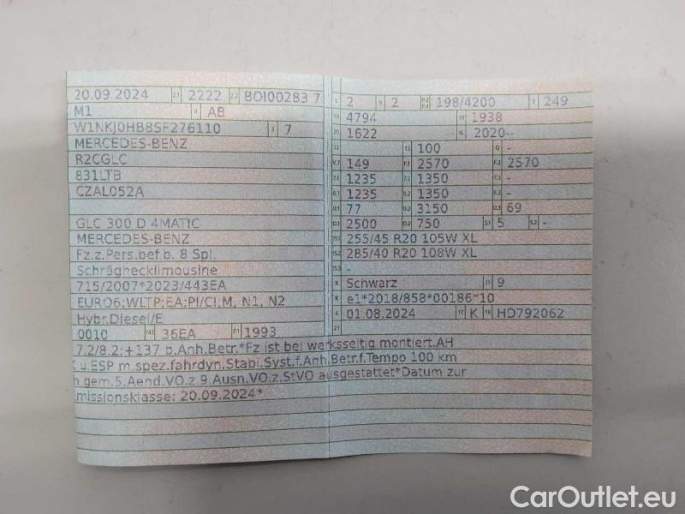 20.09.2024 2222 BOI00283 7
M1 AB
W1NKJ0HB8SF276110 7
MERCEDES-BENZ
R2CGLC
831LTB
CZAL052A
GLC 300 D 4MATIC
MERCEDES-BENZ
Fz.z.Pers.bef.b. 8 Spl.
Schräghecklimousine
715/2007*2023/443EA
EURO6;WLTP;EA;PI/CI;M, N1, N2
Hybr.Diesel/E
0010 36EA 1993
2 2 198/4200 249
4794 1938
1622 2020--
100 -
149 2570 2570
1235 1350 -
1235 1350 -
77 3150 69
2500 750 5 -
255/45 R20 105W XL
285/40 R20 108W XL
-
Schwarz 9
e1*2018/858*00186*10
01.08.2024 K HD792062
7.2/8.2:+137 b.Anh.Betr.*Fz ist bei werksseitig montiert.AH
u.ESP m.spez.fahrdyn.Stabi.Syst.f.Anh.Betr.f.Tempo 100 km
gem.5.Aend.VO.z.9.Ausn.VO.z.StVO ausgestattet*Datum zur
missionsklasse: 20.09.2024*
CarOutlet.eu